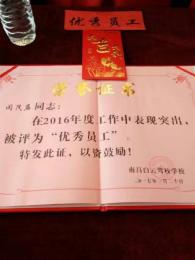 优秀员工
荣誉证书
同志：
在2016年度工作中表现突出，
被评为“优秀员工”。
特发此证，以资鼓励！
南昌白云驾校学校
二〇一七年一月二十日